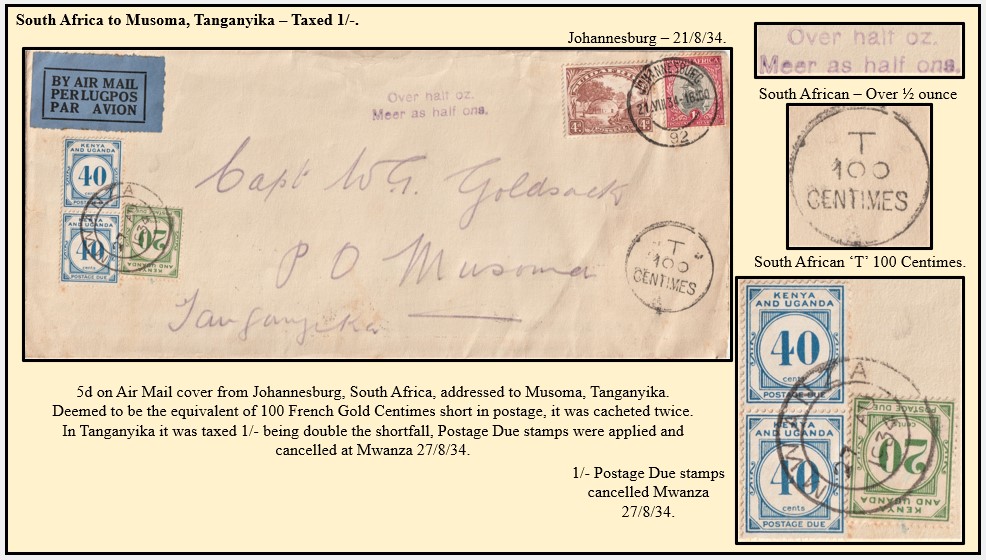 South Africa to Musoma, Tanganyika – Taxed 1/-.
Johannesburg – 21/8/34.
BY AIR MAIL
PER LUGPOS
PAR AVION
Over half oz.
Meer as half ons.
JOHANNESBURG
21.VIII.34-16
92
KENYA
AND UGANDA
40
cents
POSTAGE DUE
KENYA
AND UGANDA
40
cents
POSTAGE DUE
20
KENYA
AND UGANDA
MWANZA
Capt W.G. Goldsack
P O Musoma
Tanganyika
T
100
CENTIMES
Over half oz.
Meer as half ons.
South African – Over ½ ounce
T
100
CENTIMES
South African ‘T’ 100 Centimes.
KENYA
AND UGANDA
40
cents
POSTAGE DUE
KENYA
AND UGANDA
40
cents
POSTAGE DUE
POSTAGE DUE
cents
20
KENYA
AND UGANDA
MWANZA
27 AU
1934
5d on Air Mail cover from Johannesburg, South Africa, addressed to Musoma, Tanganyika.
Deemed to be the equivalent of 100 French Gold Centimes short in postage, it was cacheted twice.
In Tanganyika it was taxed 1/- being double the shortfall, Postage Due stamps were applied and
cancelled at Mwanza 27/8/34.
1/- Postage Due stamps
cancelled Mwanza
27/8/34.